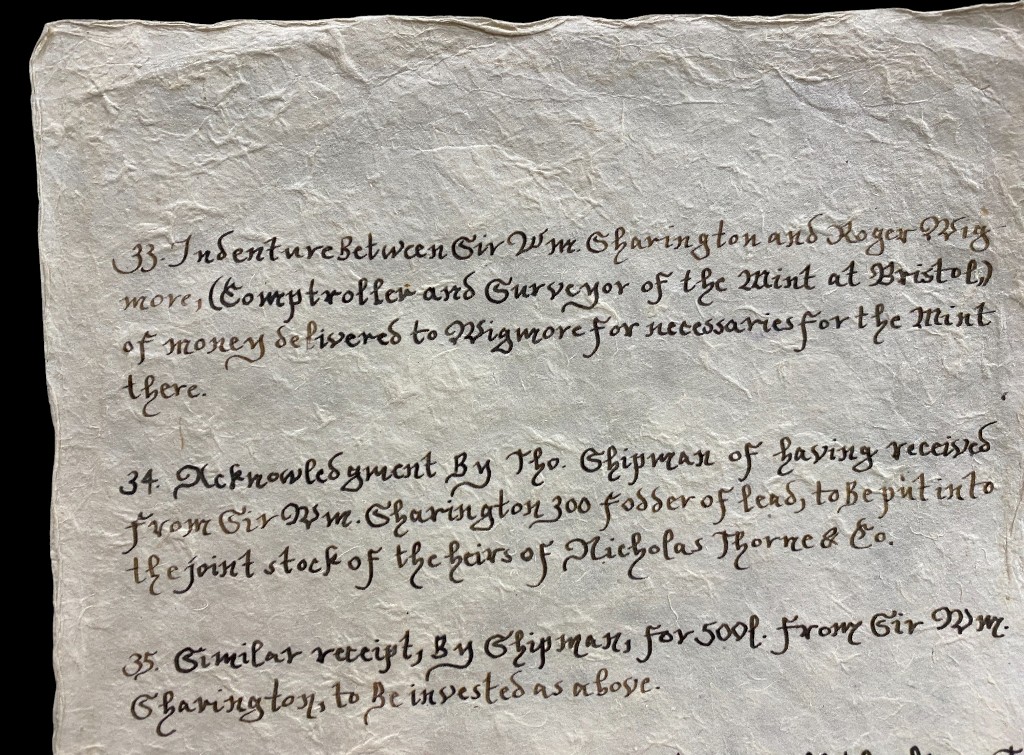 33. Indenture Between Sir Wm. Sharington and Roger Wig
more, (Comptroller and Surveyor of the Mint at Bristol,)
of money delivered to Wigmore for necessaries for the Mint
there.
34. Acknowledgment By Tho. Shipman of having received
from Sir Wm. Sharington 300 fodder of lead, to Be put into
the joint stock of the heirs of Nicholas Thorne & Co.
35. Similar receipt, By Shipman, for 500l. from Sir Wm.
Sharington, to Be invested as above.